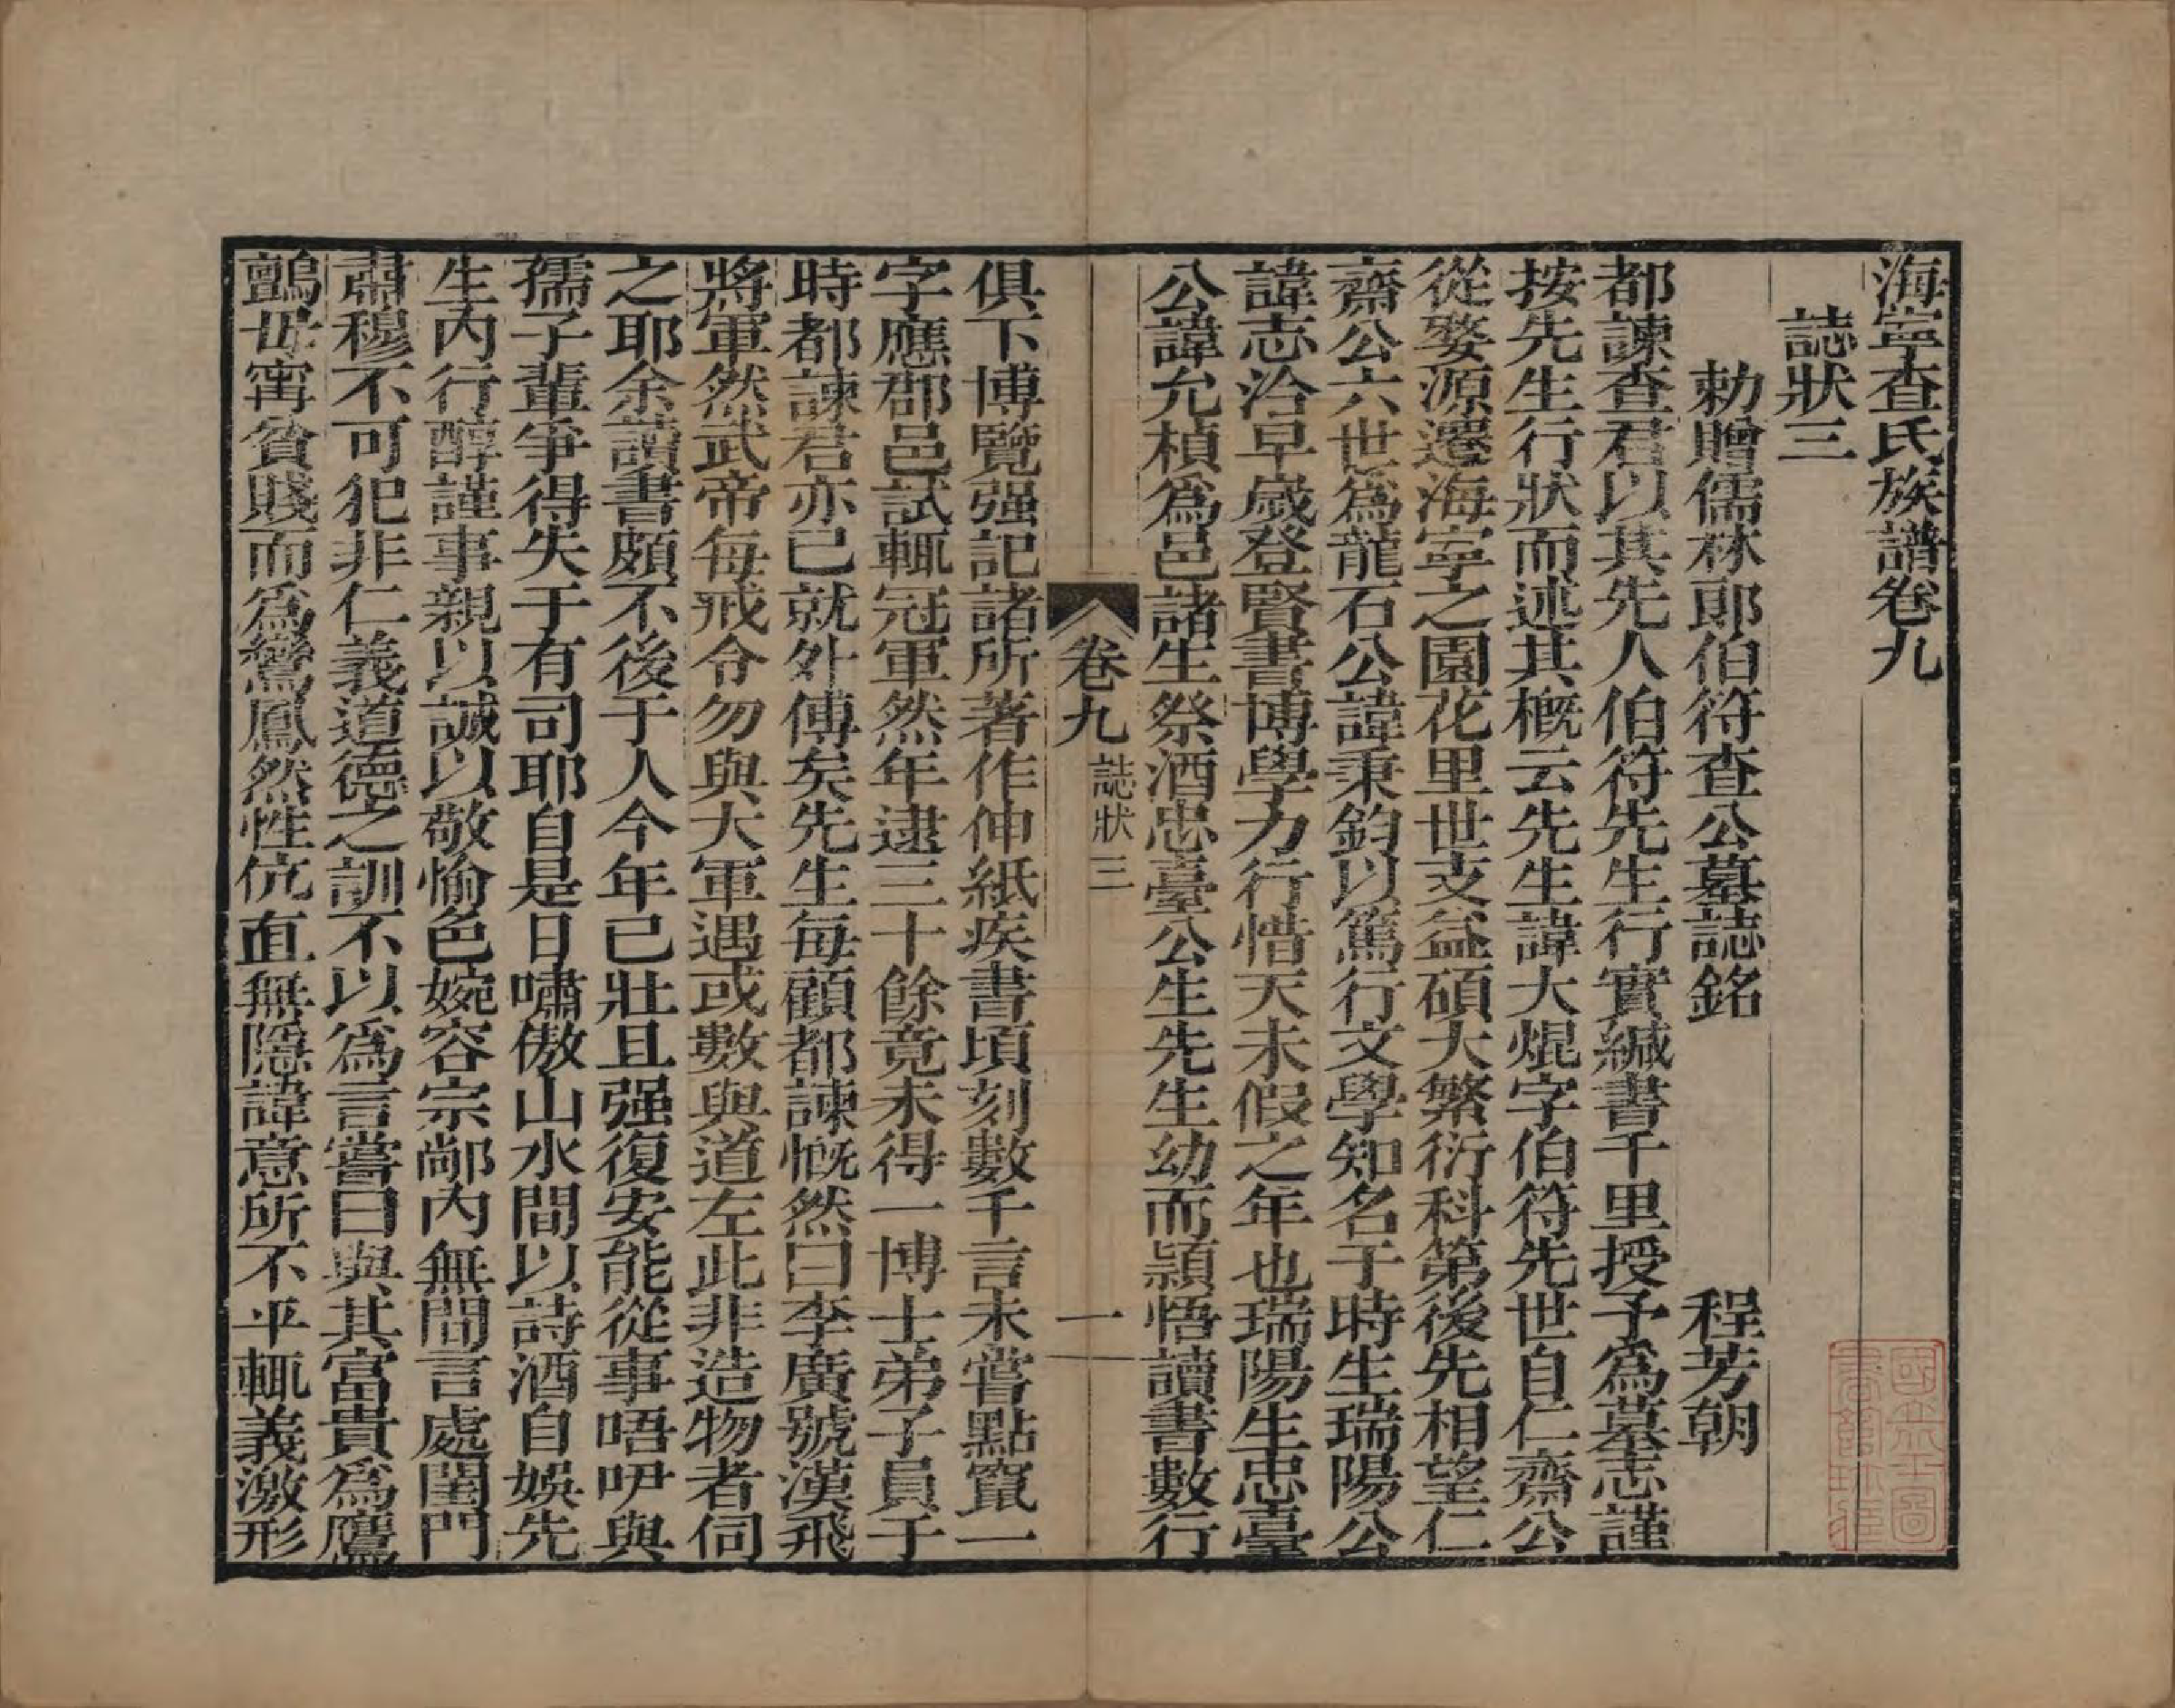 海寧查氏族譜卷九
誌狀三
勅贈儒林郎伯符查公墓誌銘 程芳朝
都諫查君以其先人伯符先生行實緘書千里授予爲墓志謹
按先生行狀而述其概云先生諱大焜字伯符先世自仁齋公
從婺源遷海寧之園花里世支益碩大繁衍科第後先相望仁
齋公六世爲龍石公諱秉鈞以篤行文學知名于時生瑞陽公
諱志洽早歲登賢書博學力行惜天未假之年也瑞陽生忠臺
公諱允楨爲邑諸生祭酒忠臺公生先生幼而頴悟讀書數行
卷九 誌狀三 一
俱下博覽强記諸所著作伸紙疾書頃刻數千言未嘗點竄一
字應郡邑試輒冠軍然年逮三十餘竟未得一博士弟子員于
時都諫君亦已就外傅矣先生每顧都諫慨然曰李廣號漢飛
將軍然武帝每戒令勿與大軍遇或數與道左此非造物者伺
之耶余讀書頗不後于人今年已壯且强復安能從事唔吚與
孺子輩爭得失于有司耶自是日嘯傲山水間以詩酒自娛先
生內行醇謹事親以誠以敬愉色婉容宗鄰內無間言處閨門
肅穆不可犯非仁義道德之訓不以爲言嘗曰與其富貴爲鷹
鸇毋寗貧賤而爲鸞鳳然性伉直無隱諱意所不平輒義激形